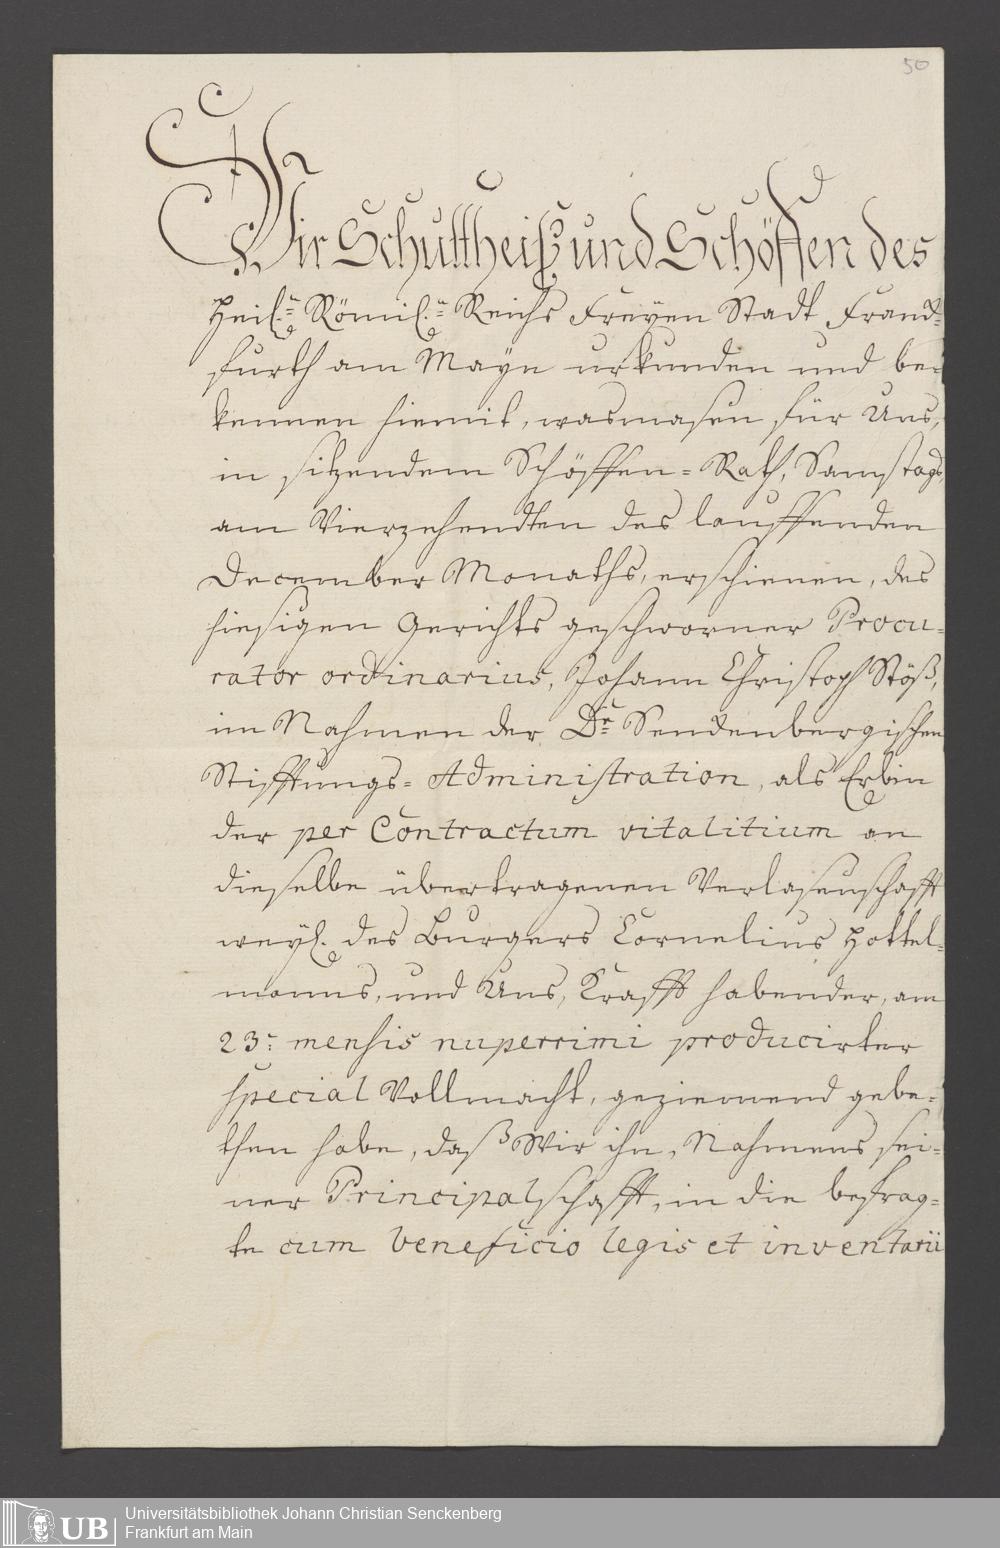 50
Wir Schultheiß und Schöffen des
Heil.n Römil.n Reichs Freyen Stadt Franck-
furth am Mayn urkunden und be-
kennen hiemit, wasmasen für Uns,
in sitzendem Schöffen-Rath, Samstags,
am Vierzehendten des lauffenden
December Monaths, erschienen, des
hiesigen Gerichts geschworner Procu-
rator ordinarius, Johann Christoph Stöß,
im Nahmen der Dr. Senckenbergischen
Stifftungs-Administration, als Erbin
der per Contractum vitalitium an
dieselbe übertragenen Verlasenschafft
weyl. des Burgers Cornelius Hottel-
manns, und Uns, Krafft habender, am
23: mensis nuperrimi producirter
special Vollmacht, geziemend gebe-
then habe, daß Wir ihn, Nahmens sei-
ner Principalschafft, in die besrag-
te cum beneficio legis et inventarii
UB
Universitätsbibliothek Johann Christian Senckenberg
Frankfurt am Main